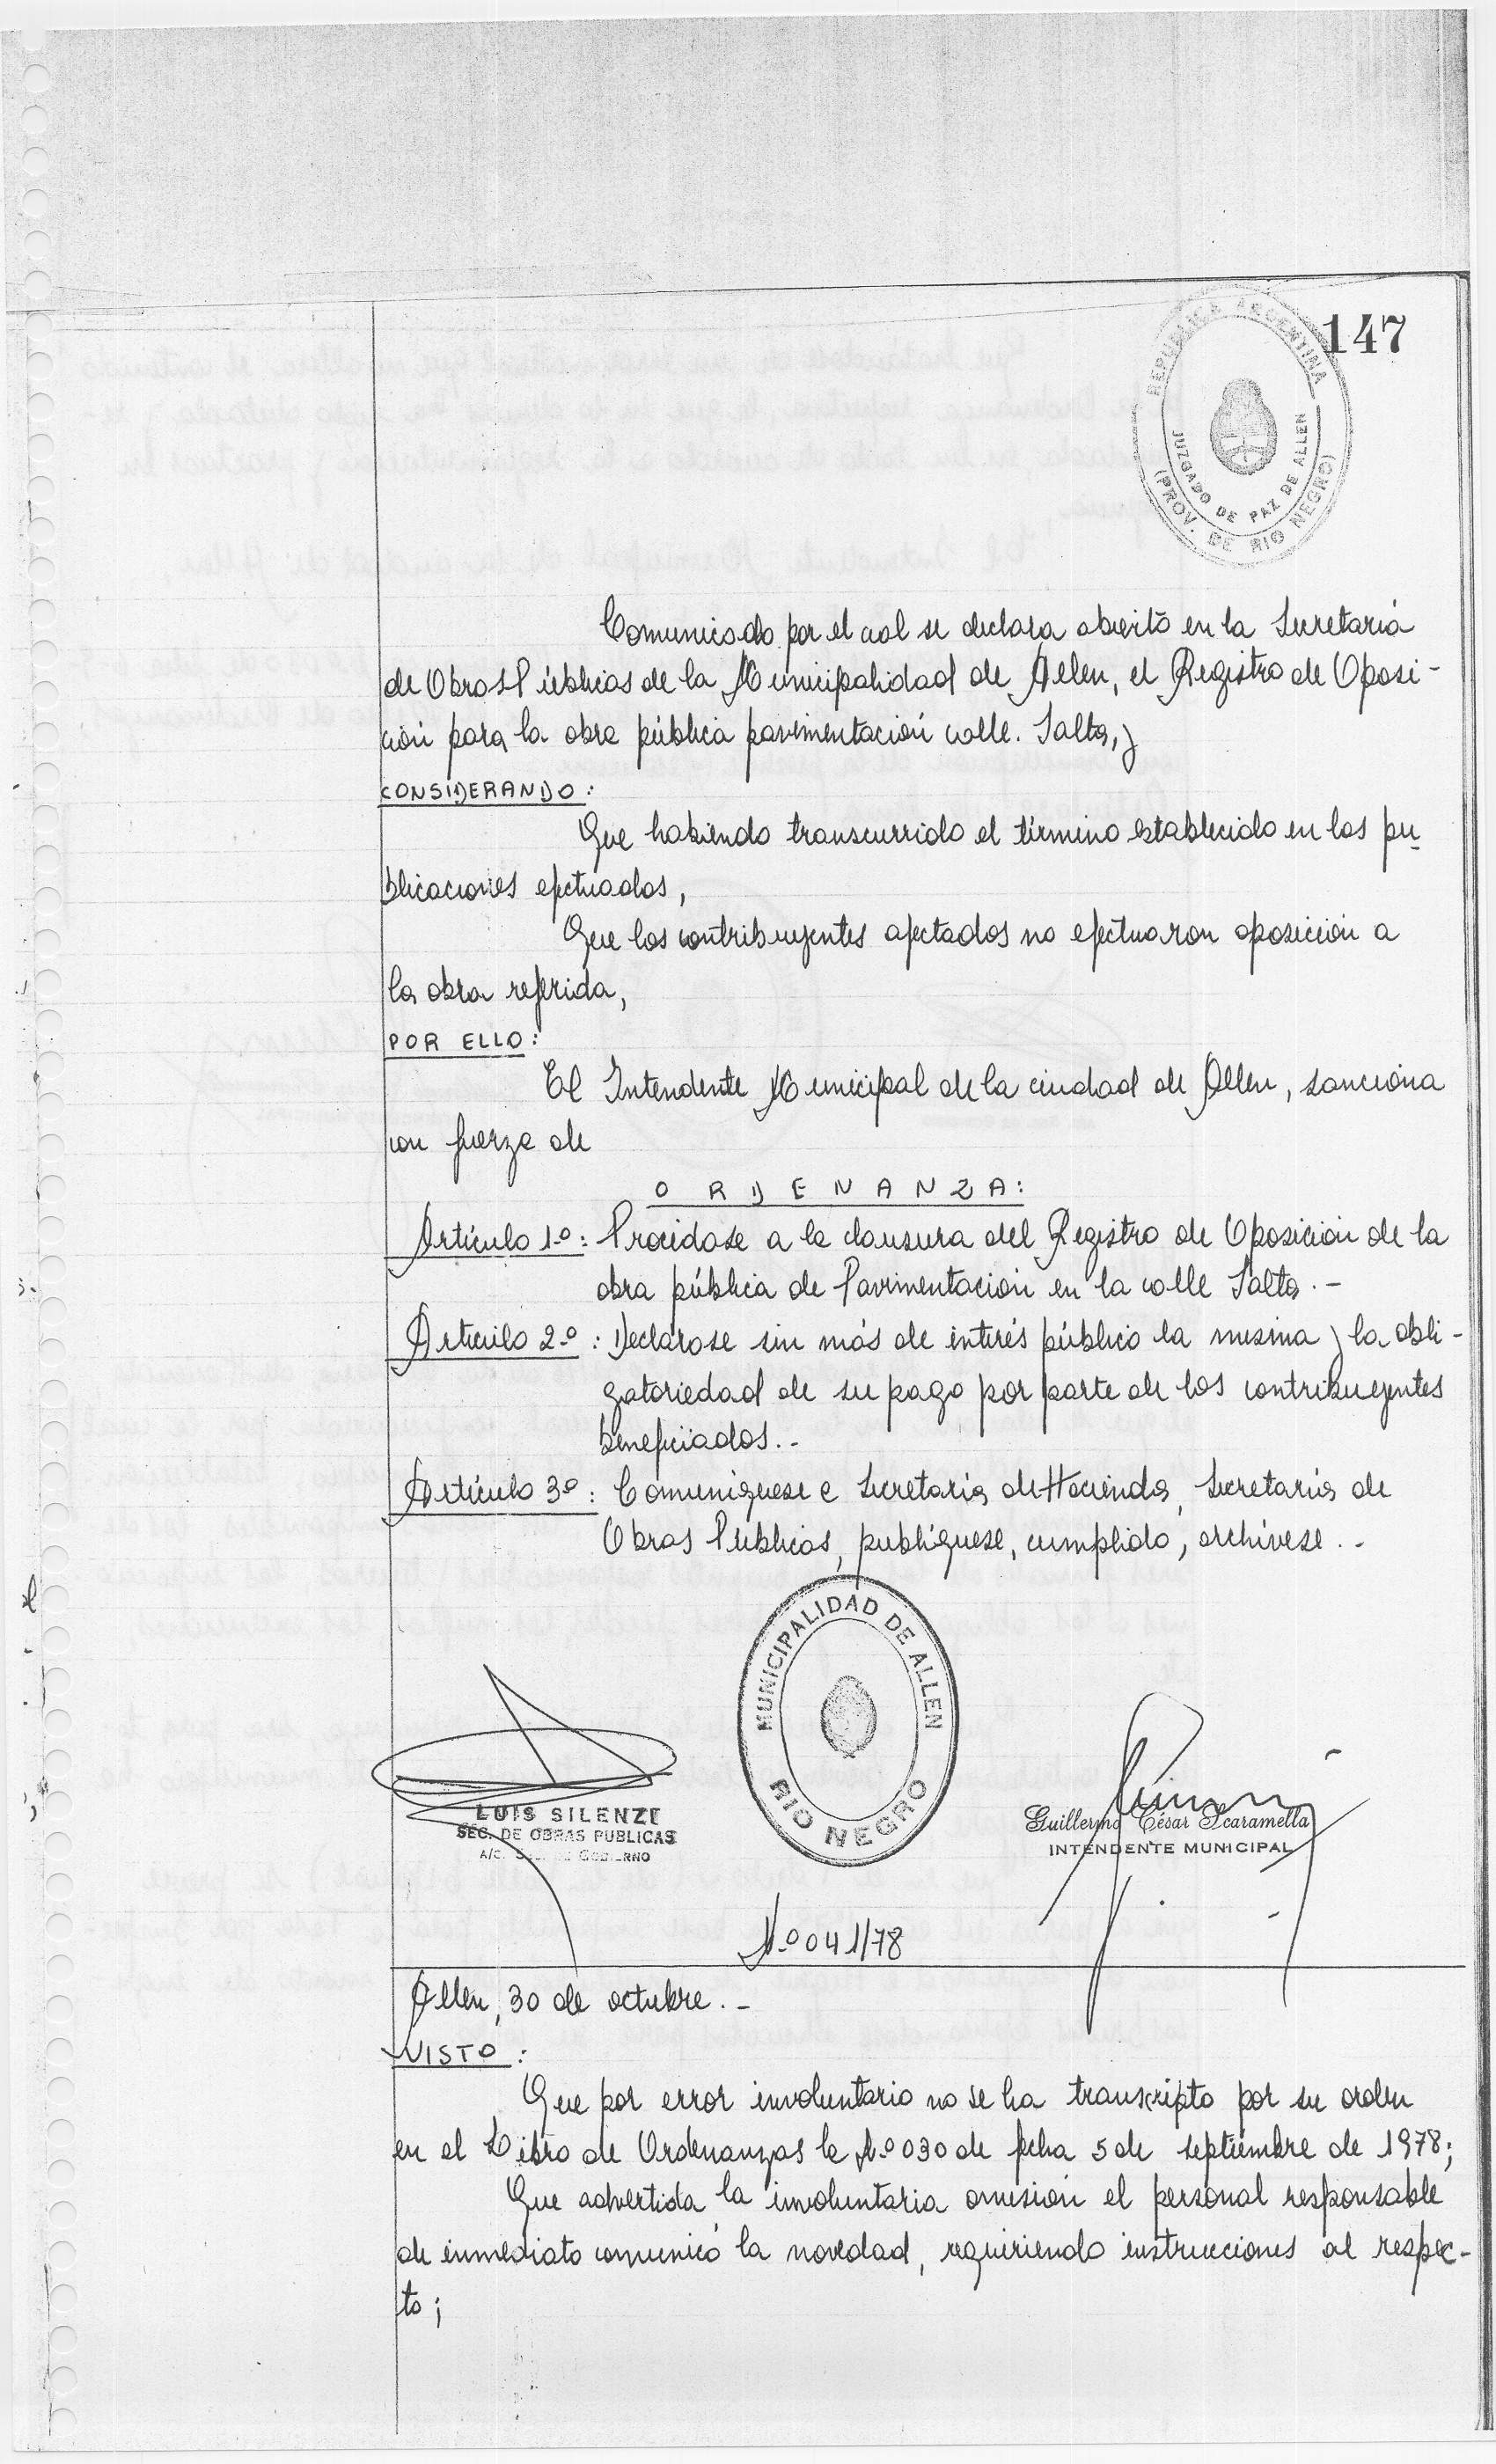 147
REPUBLICA ARGENTINA
JUZGADO DE PAZ DE ALLEN
(PROV. DE RIO NEGRO)
Comunicado por el cual se declara abierto en la Secretaría
de Obras Públicas de la Municipalidad de Allen, el Registro de Oposi-
ción para la obra pública pavimentación calle Salta, y
CONSIDERANDO:
Que habiendo transcurrido el término establecido en las pu
blicaciones efectuadas,
Que los contribuyentes afectados no efectuaron oposición a
la obra referida,
POR ELLO:
El Intendente Municipal de la ciudad de Allen, sanciona
con fuerza de
O R D E N A N Z A:
Artículo 1º: Procédase a la clausura del Registro de Oposición de la
obra pública de Pavimentación en la calle Salta.-
Artículo 2º: Declárase sin más de interés público la misma y la obli-
gatoriedad de su pago por parte de los contribuyentes
beneficiados.-
Artículo 3º: Comuníquese a Secretaría de Hacienda, Secretaría de
Obras Públicas, publíquese, cumplido, archívese.-
MUNICIPALIDAD DE ALLEN
RIO NEGRO
LUIS SILENZI
SEC. DE OBRAS PUBLICAS
A/C. GOBIERNO
Guillermo César Scaramella
INTENDENTE MUNICIPAL
Nº 041/78
Allen, 30 de octubre.-
VISTO:
Que por error involuntario no se ha transcripto por su orden
en el Libro de Ordenanzas la Nº 030 de fecha 5 de septiembre de 1978;
Que advertida la involuntaria omisión el personal responsable
de inmediato comunicó la novedad, requiriendo instrucciones al respec-
to;